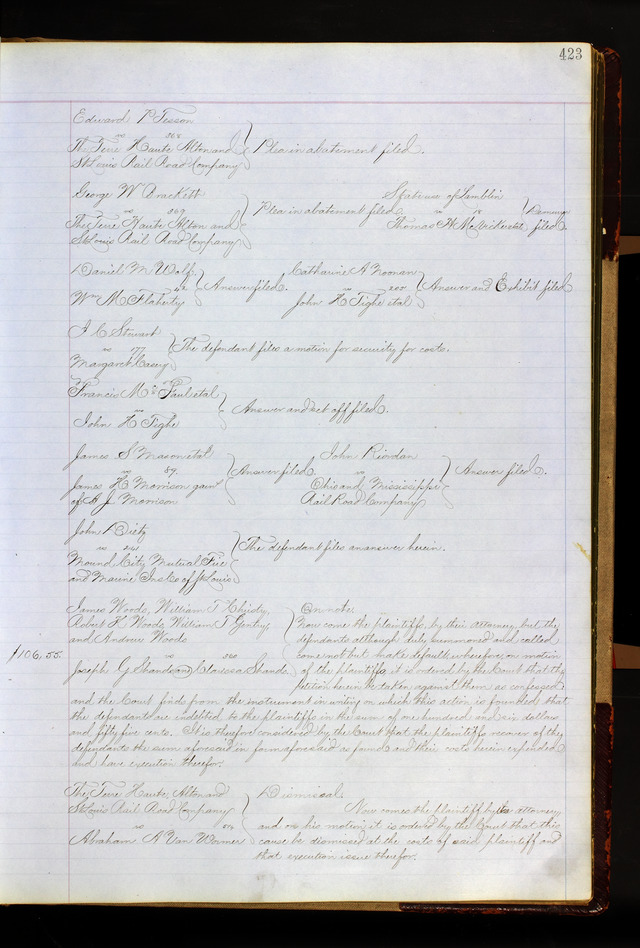 423
Edward P Tesson
vs 368
The Terre Haute Alton and
St Louis Rail Road Company
Plea in abatement filed.
George W Brackett
vs 369
The Terre Haute Alton and
St Louis Rail Road Company
Plea in abatement filed
State use of Lamblin
vs 78
Thomas H
filed
Daniel M Wolf
vs
Wm M Flaherty
Answer filed.
Catharine A Noonan
vs 200
John H Tighe et al
Answer and Exhibit filed
J C Stewart
vs 177
Margaret Casey
The defendant files a motion for security for costs.
Francis Mc Paul et al
vs
John H Tighe
Answer and set off filed.
James S Mason et al
vs 89.
James H Morrison garn
of A J Morrison
Answer filed.
John Riordan
vs
Ohio and Mississippi
Rail Road Company
Answer filed.
John Dietz
vs 241
Mound City Mutual Fire
and Marine Ins Co of St Louis
The defendant files an answer herein.
James Woods, William T Christy,
Robert K Woods, William T Gentry,
and Andrew Woods
vs 360
Joseph G Shands and Clarissa Shands
On note.
Now come the plaintiffs by their attorney but the
defendants although duly summoned and called
come not but make default wherefore on motion
of the plaintiffs it is ordered by the Court that the
petition herein be taken against them as confessed
$106.55.
and the Court finds from the instrument in writing on which this action is founded that
the defendants are indebted to the plaintiffs in the sum of one hundred and six dollars
and fifty five cents. It is therefore considered by the Court that the plaintiffs recover of the
defendants the sum aforesaid in form aforesaid as found and their costs herein expended
and have execution therefor.
The Terre Haute, Alton and
St Louis Rail Road Company
vs 54
Abraham A Van Wormer
Dismissal.
Now comes the plaintiff by its attorney
and on his motion it is ordered by the Court that this
cause be dismissed at the costs of said plaintiff and
that execution issue therefor.